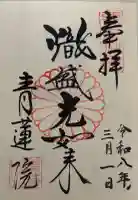 奉拝
令和八年
三月一日
熾盛光如来
青蓮院